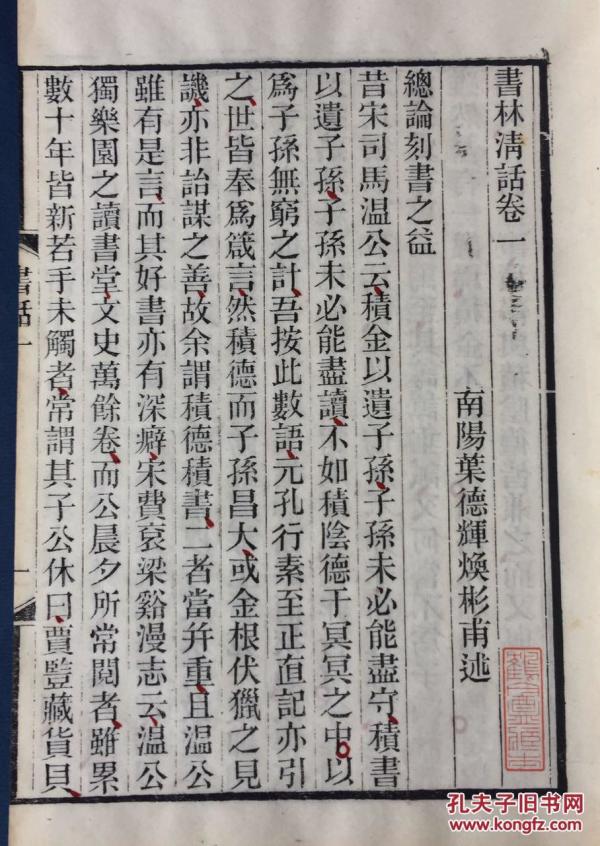 書林清話卷一
南陽葉德輝煥彬甫述
總論刻書之益
昔宋司馬温公云積金以遺子孫子孫未必能盡守積書
以遺子孫子孫未必能盡讀不如積陰德于冥冥之中以
爲子孫無窮之計吾按此數語元孔行素至正直記亦引
之世皆奉爲箴言然積德而子孫昌大或金根伏獵之見
譏亦非詒謀之善故余謂積德積書二者當并重且温公
雖有是言而其好書亦有深癖宋費袞梁谿漫志云温公
獨樂園之讀書堂文史萬餘卷而公晨夕所常閱者雖累
數十年皆新若手未觸者常謂其子公休曰賈豎藏貨貝
書話一
孔夫子旧书网
www.kongfz.com